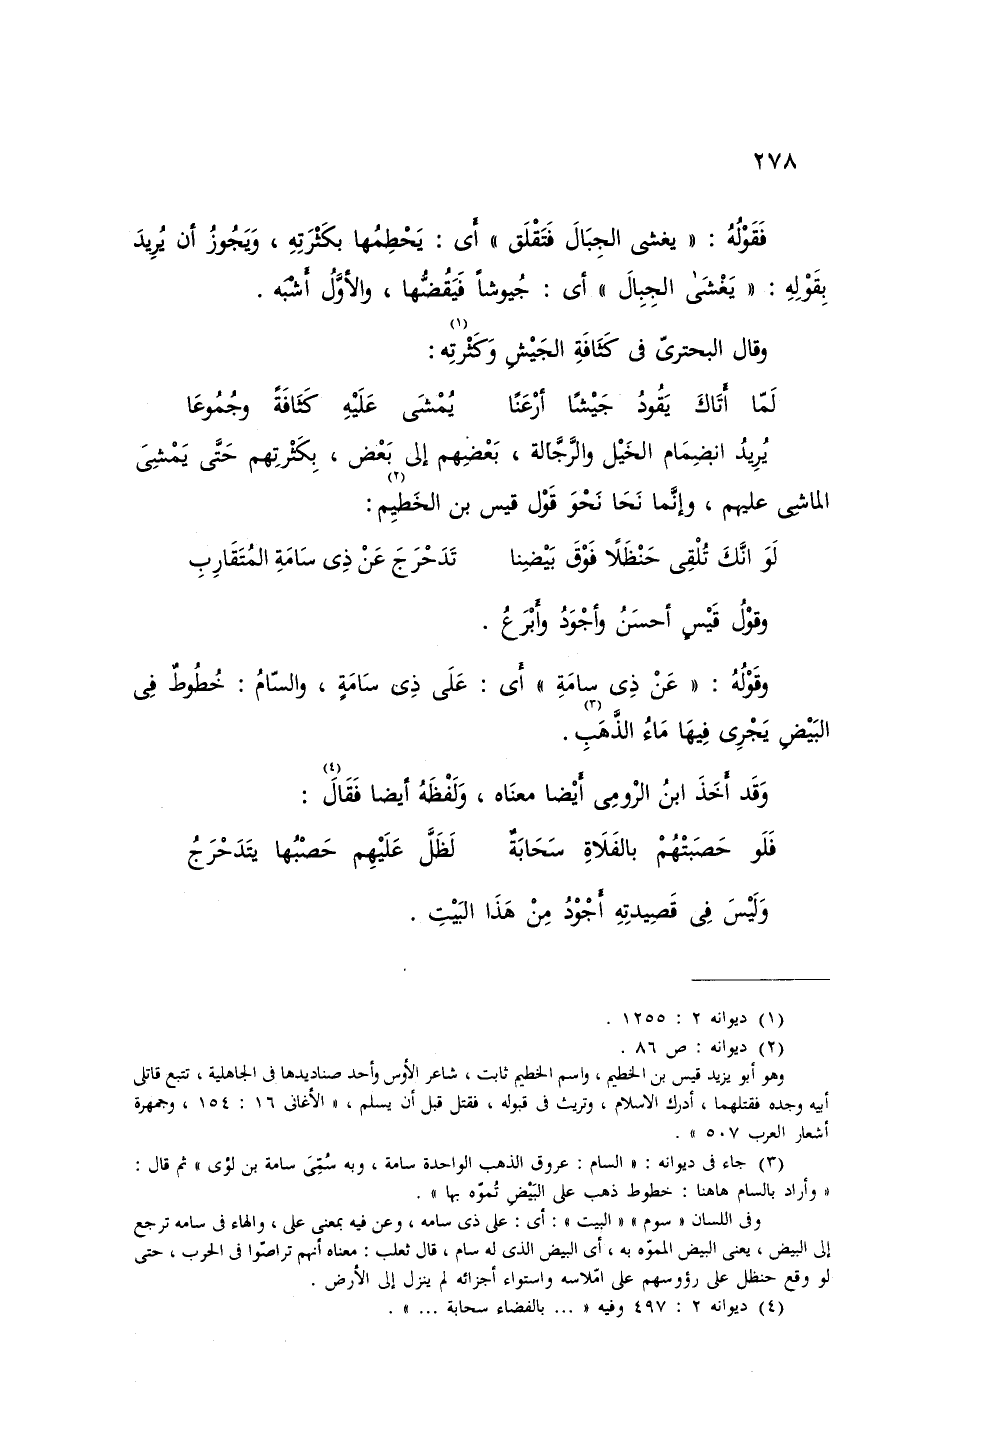 ٢٧٨
فَقَوْلُهُ : « يغشى الجِبَالَ فَتَقْلَق » أَى : يَحْطِمُها بكَثْرَتِهِ ، وَيَجُوزُ أن يُرِيدَ
بِقَوْلِهِ : « يَغْشَىٰ الجِبِالَ » أى : جُيوشاً فَيَقُضُّها ، والأوَّلُ أَشْبَه .
وقال البحترىّ فى كَثَافَةِ الجَيْشِ وَكَثْرتِه (١) :
لَمّا أَتَاكَ يَقُودُ جَيْشًا أرْعَنًا يُمْشَى عَلَيْهِ كَثَافَةً وجُمُوعَا
يُرِيدُ انبضِمَام الخَيْل والرَّجَّالة ، بَعْضِهم إلى بَعْض ، بِكَثْرتِهم حَتَّى يَمْشِىَ
الماشِى عليهم ، وإنَّما نَحَا نَحْوَ قَوْل قيس بن الخَطيِم (٢) :
لَوَ انَّكَ تُلْقِى حَنْظَلًا فَوْقَ بَيْضِنا تَدَحْرَجَ عَنْ ذِى سَامَةِ المُتَقَارِبِ
وقوْلُ قَيْسٍ أحسَنُ وأجْوَدُ وأَبْرَعُ .
وقَوْلُهُ : « عَنْ ذِى سامَةِ » أَى : عَلَى ذِى سَامَةٍ ، والسّامُ : خُطُوطٌ فِى
البَيْضِ يَجْرِى فِيهَا مَاءُ الذَّهَبِ (٣) .
وَقَد أَخَذَ ابنُ الرْومِى أَيْضا معنَاه ، وَلَفْظَهُ أيضا فَقَالَ (٤) :
فَلَو حَصَبَتْهُمْ بالفَلَاةِ سَحَابَةٌ لَظَلَّ عَلَيْهِم حَصْبُها يتَدَحْرَجُ
وَلَيْسَ فِى قَصِيدتِهِ أَجْوْدُ مِنْ هَذَا البَيْتِ .
(١) ديوانه ٢ : ١٢٥٥ .
(٢) ديوانه : ص ٨٦ .
وهو أبو يزيد قيس بن الخطيم ، واسم الخطيم ثابت ، شاعر الأوس وأحد صناديدها فى الجاهلية ، تتبع قاتلى
أبيه وجده فقتلهما ، أدرك الاسلام ، وتريث فى قبوله ، فقتل قبل أن يسلم ، « الأغانى ١٦ : ١٥٤ ، وجمهرة
أشعار العرب ٥٠٧ » .
(٣) جاء فى ديوانه : « السام : عروق الذهب الواحدة سامة ، وبه سُمِّىَ سامة بن لؤى » ثم قال :
« وأراد بالسام هاهنا : خطوط ذهب على البَيْضِ تُموّه بها » .
وفى اللسان « سوم » « البيت » : أى : على ذى سامه ، وعن فيه بمعنى على ، والهاء فى سامه ترجع
إلى البيض ، يعنى البيض المموّه به ، أى البيض الذى له سام ، قال ثعلب : معناه أنهم تراصّوا فى الحرب ، حتى
لو وقع حنظل على رؤوسهم على امّلاسه واستواء أجزائه لم ينزل إلى الأرض .
(٤) ديوانه ٢ : ٤٩٧ وفيه « ... بالفضاء سحابة ... » .